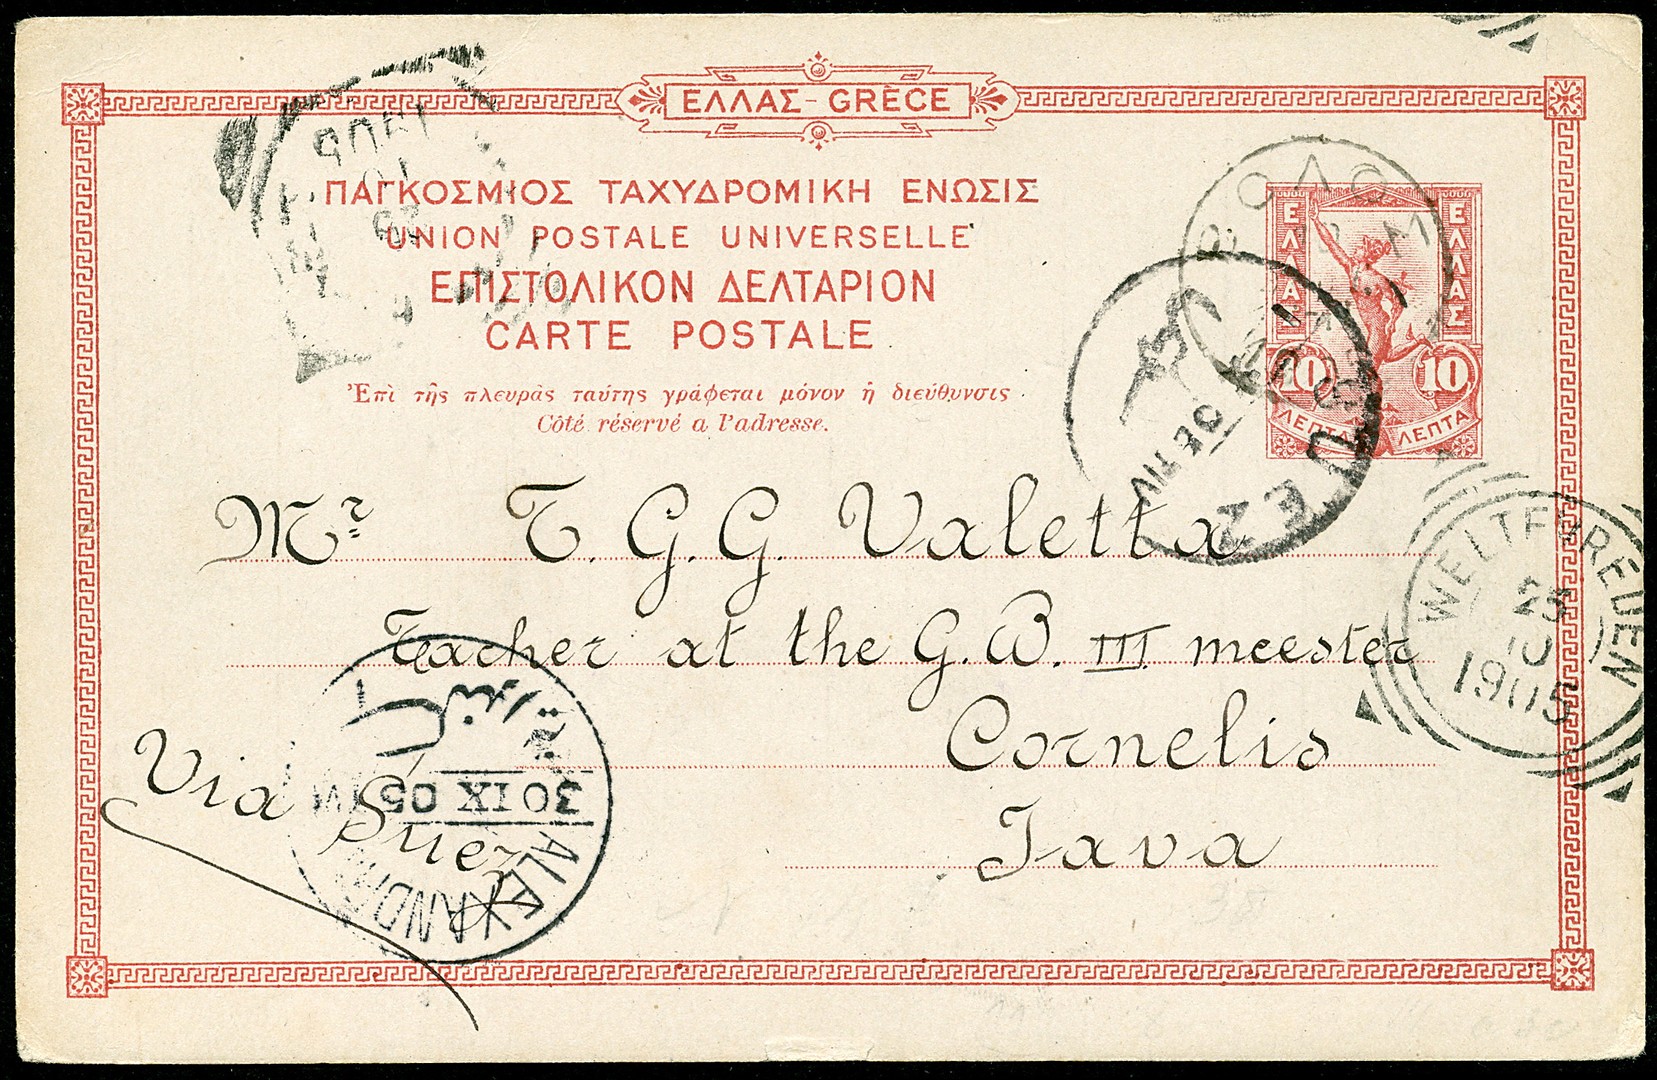 ΕΛΛΑΣ-GRÈCE
ΠΑΓΚΟΣΜΙΟΣ ΤΑΧΥΔΡΟΜΙΚΗ ΕΝΩΣΙΣ
UNION POSTALE UNIVERSELLE
ΕΠΙΣΤΟΛΙΚΟΝ ΔΕΛΤΑΡΙΟΝ
CARTE POSTALE
Ἐπὶ τῆς πλευρᾶς ταύτης γράφεται μόνον ἡ διεύθυνσις
Côté réservé a l'adresse.
ΕΛΛΑΣ
ΕΛΛΑΣ
10
10
ΛΕΠΤΑ
ΛΕΠΤΑ
ΒΟΛΟΣ
Mr T. G. G. Valetta
Teacher at the G. B. III meester
Cornelis
Java
Via Suez
WELTEVREDEN
25
10
1905
30 IX 05
ALEXANDRIA
1905